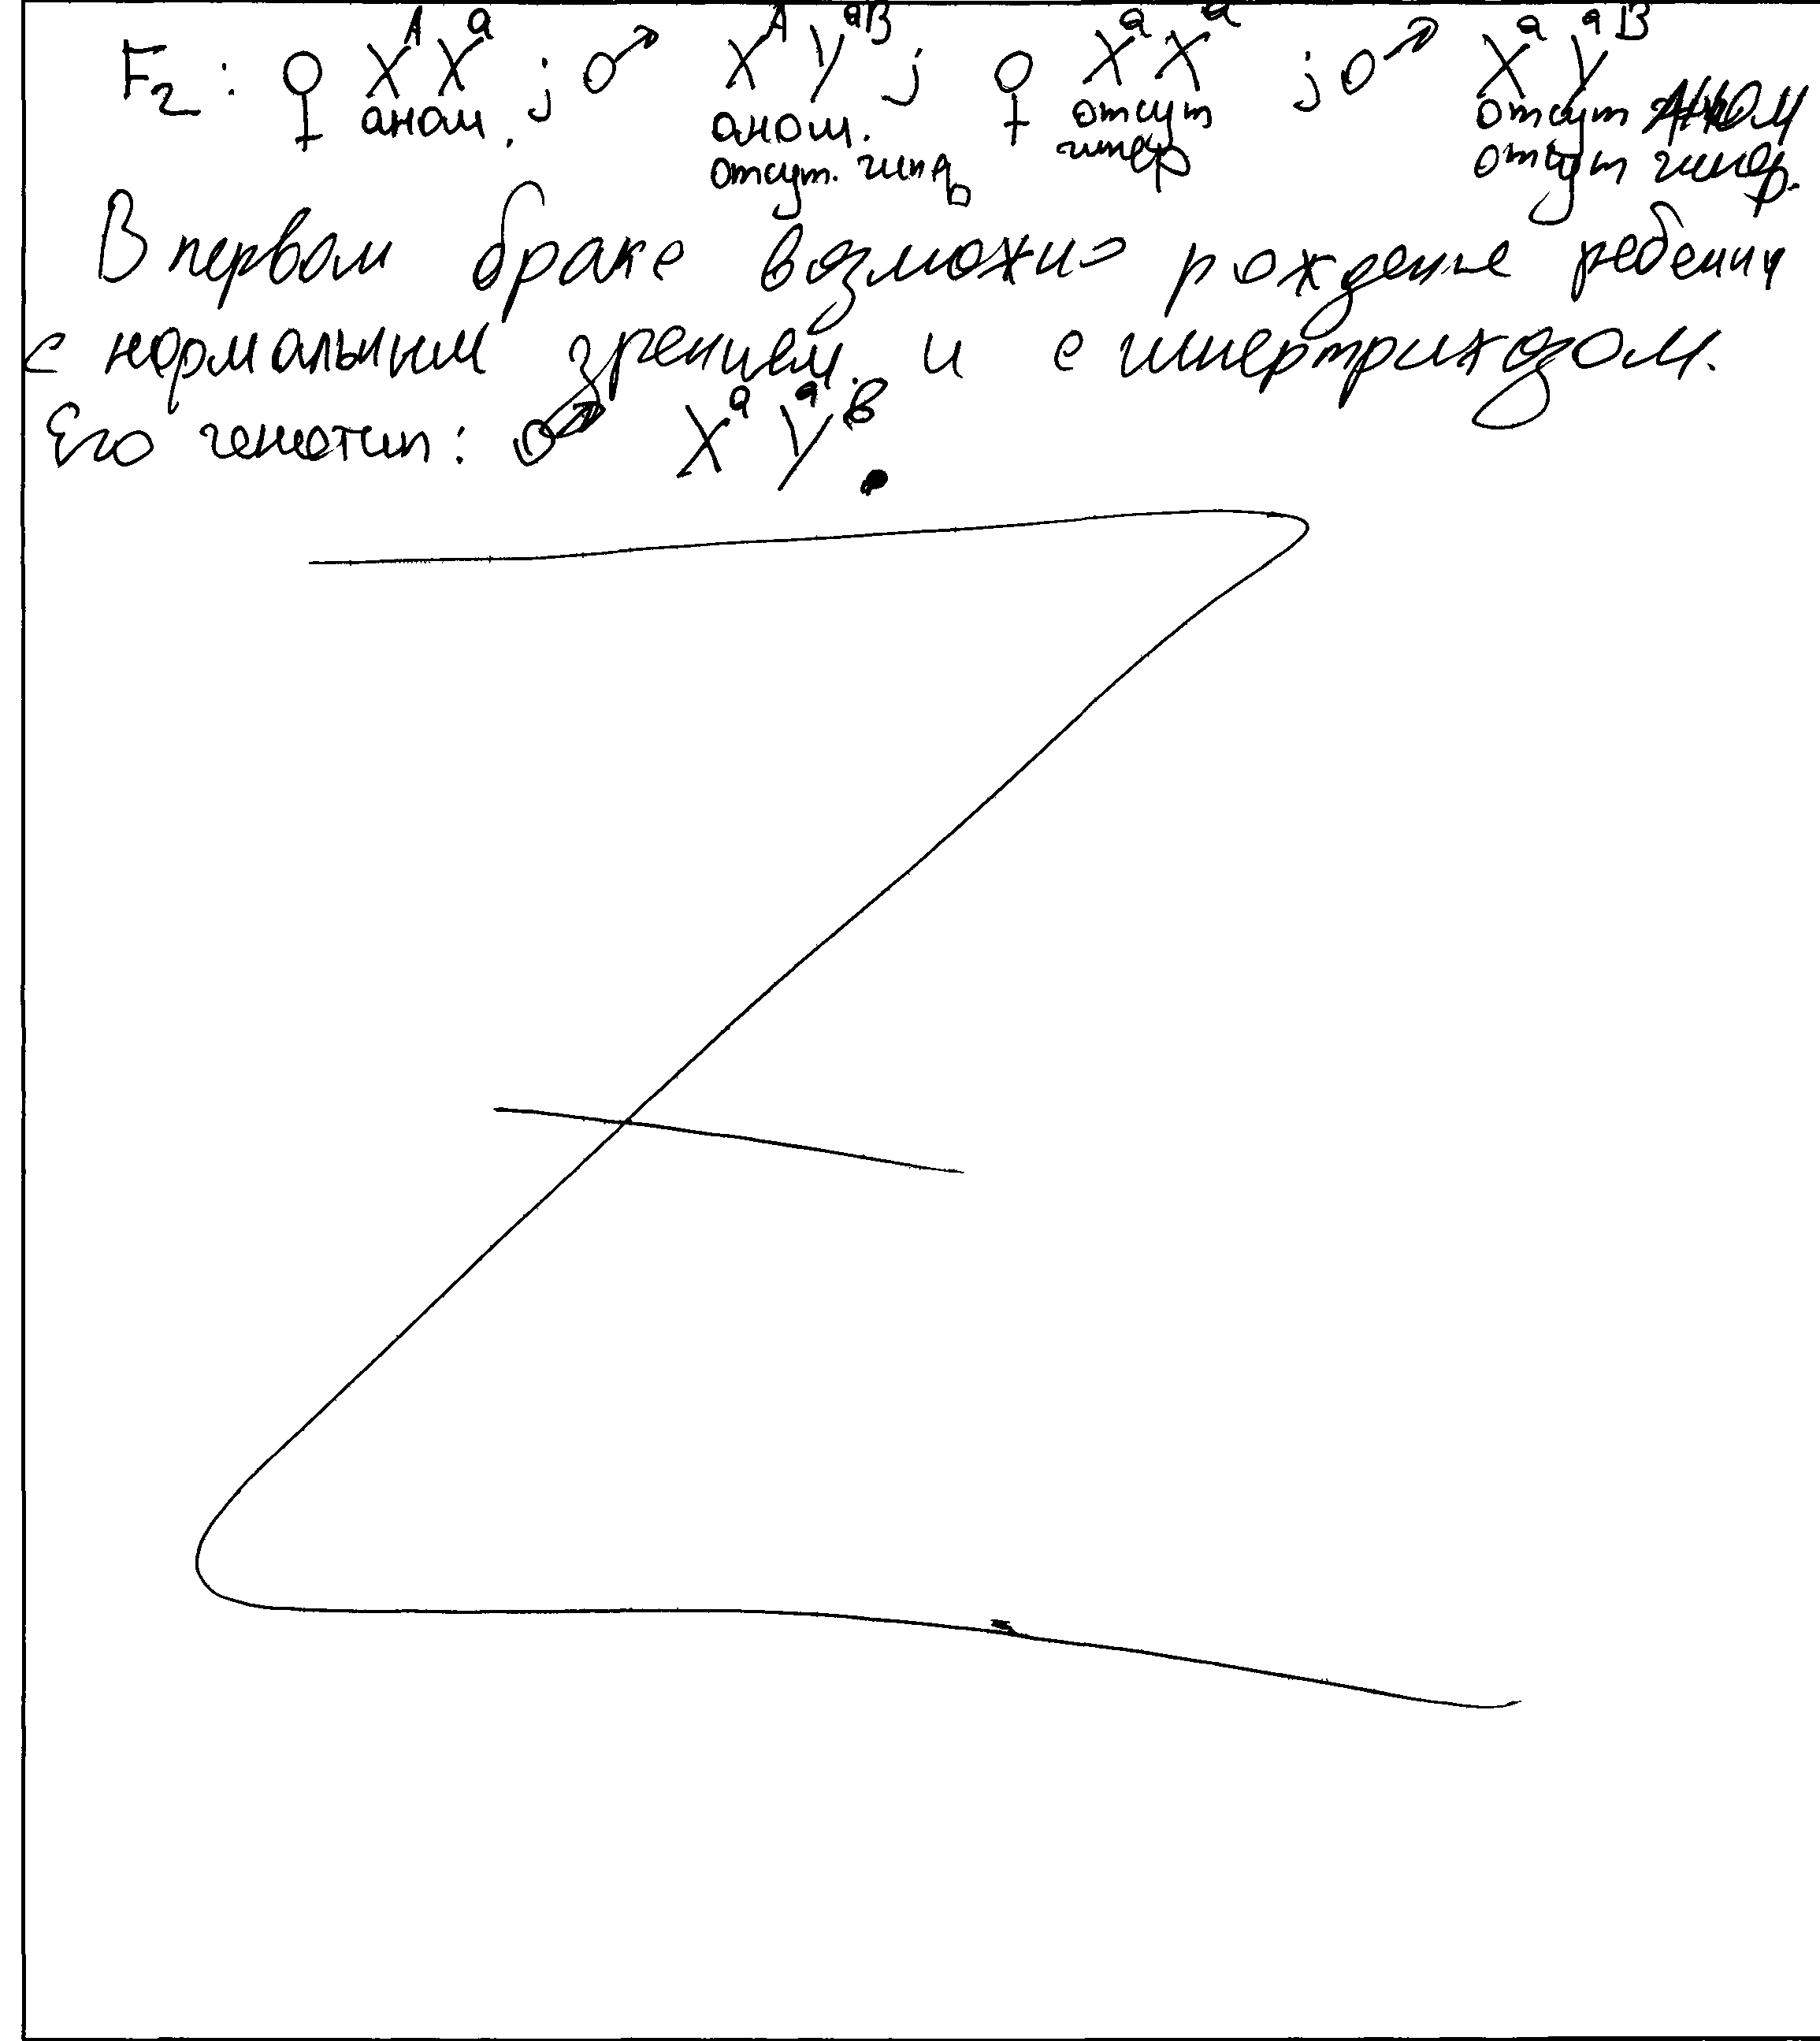 F₂ : ♀ XᴬXᵃ ; ♂ XᴬYᵃᴮ ; ♀ XᵃXᵃ ; ♂ XᵃYᵃᴮ
аном. аном. отсут отсут аном
отсут. гипер гипер отсут гипер.
В первом браке возможно рождение ребенка
с нормальным зрением и с гипертрихозом.
Его генотип: ♂ XᵃYᵃᵇ.